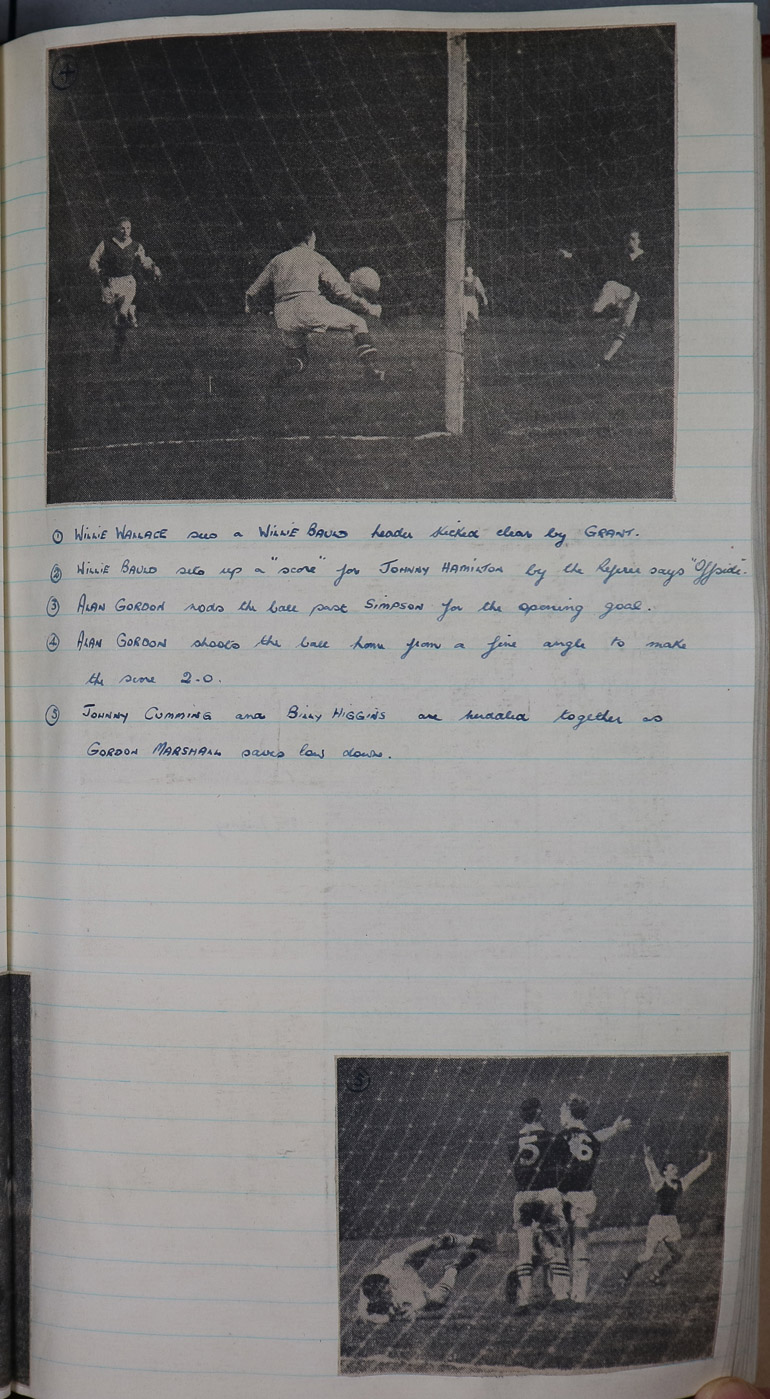 4
① WILLIE WALLACE sees a WILLIE BAULD header kicked clear by GRANT.
② WILLIE BAULD sets up a "score" for JOHNNY HAMILTON by the Referee says "Offside".
③ ALAN GORDON nods the ball past SIMPSON for the opening goal.
④ ALAN GORDON shoots the ball home from a fine angle to make
the score 2-0.
⑤ JOHNNY CUMMING and BILLY HIGGINS are huddled together as
GORDON MARSHALL saves low down.
5
5 6